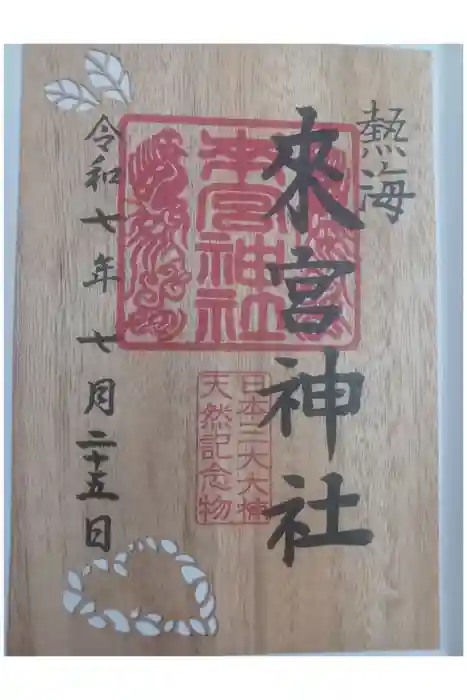 熱海
來宮神社
來宮神社
日本三大大楠
天然記念物
令和七年七月二十五日